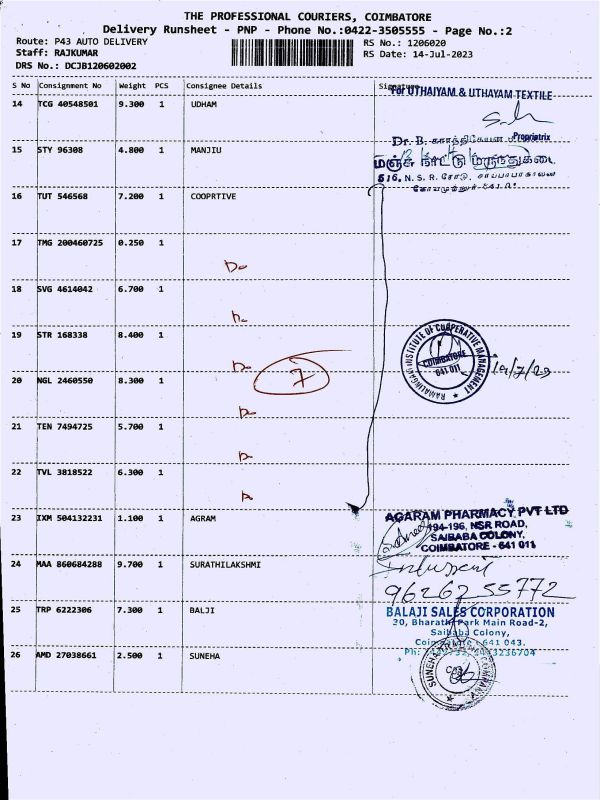 THE PROFESSIONAL COURIERS, COIMBATORE
Delivery Runsheet - PNP - Phone No.:0422-3505555 - Page No.:2
Route: P43 AUTO DELIVERY RS No.: 1206020
Staff: RAJKUMAR RS Date: 14-Jul-2023
DRS No.: DCJB120602002
S No Consignment No Weight PCS Consignee Details Signature
For UTHAIYAM & UTHAYAM TEXTILE
14 TCG 40548501 9.300 1 UDHAM
Propriatrix
Dr. B.
15 STY 96308 4.800 1 MANJIU
மஞ்சு நாட்டு மருந்துகடை
516, N. S. R. ரோடு, சாய்பாபாகாலனி
16 TUT 546568 7.200 1 COOPRTIVE
17 TMG 200460725 0.250 1
Do
18 SVG 4614042 6.700 1
Do
19 STR 168338 8.400 1
RAMALINGAM INSTITUTE OF COOPERATIVE MANAGEMENT
COIMBATORE
641 011
14/7/23
Do
7
20 NGL 2460550 8.300 1
Do
21 TEN 7494725 5.700 1
Do
22 TVL 3818522 6.300 1
Do
23 IXM 504132231 1.100 1 AGRAM
AGARAM PHARMACY PVT LTD
194-196, NSR ROAD,
SAIBABA COLONY,
COIMBATORE - 641 011
24 MAA 860684288 9.700 1 SURATHILAKSHMI
9626255772
25 TRP 6222306 7.300 1 BALJI
BALAJI SALES CORPORATION
20, Bharathi Park Main Road-2,
Saibaba Colony,
Coimbatore - 641 043.
Ph:
26 AMD 27038661 2.500 1 SUNEHA